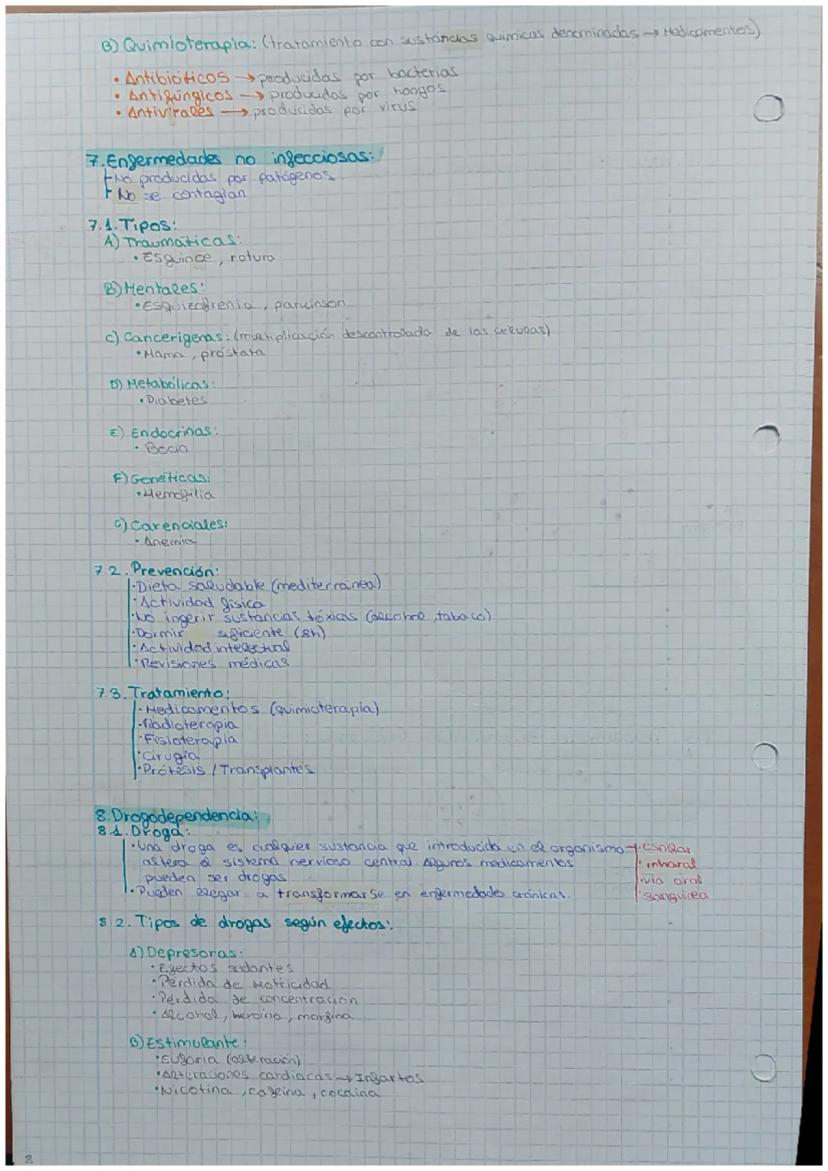 B) Quimioterapia: (tratamiento con sustancias químicas denominadas → Medicamentos)
• Antibióticos → producidas por bacterias
• Antifúngicos → producidas por hongos
• Antivirales → producidas por virus
7. Enfermedades no infecciosas:
- No producidas por patógenos
- No se contagian
7.1. Tipos:
A) Traumáticas:
• Esguince, rotura
B) Mentales:
• Esquizofrenia, parkinson
C) Cancerígenas: (multiplicación descontrolada de las células)
• Mama, próstata
D) Metabólicas:
• Diabetes
E) Endocrinas:
• Bocio
F) Genéticas:
• Hemofilia
G) Carenciales:
• Anemia
7.2. Prevención:
• Dieta saludable (mediterránea)
• Actividad física
• No ingerir sustancias tóxicas (alcohol, tabaco)
• Dormir suficiente (8h)
• Actividad intelectual
• Revisiones médicas
7.3. Tratamiento:
• Medicamentos (quimioterapia)
• Radioterapia
• Fisioterapia
• Cirugía
• Prótesis / Transplantes
8. Drogodependencia:
8.1. Droga:
• Una droga es cualquier sustancia que introducida en el organismo • esnifar
altera el sistema nervioso central. Algunos medicamentos • inhalar
pueden ser drogas • vía oral
• Pueden llegar a transformarse en enfermedades crónicas. • sanguínea
8.2. Tipos de drogas según efectos:
A) Depresoras:
• Efectos sedantes
• Pérdida de motricidad
• Pérdida de concentración
• Alcohol, heroína, morfina
B) Estimulante:
• Euforia
• Alteraciones cardiacas → Infartos
• Nicotina, cafeína, cocaína
2